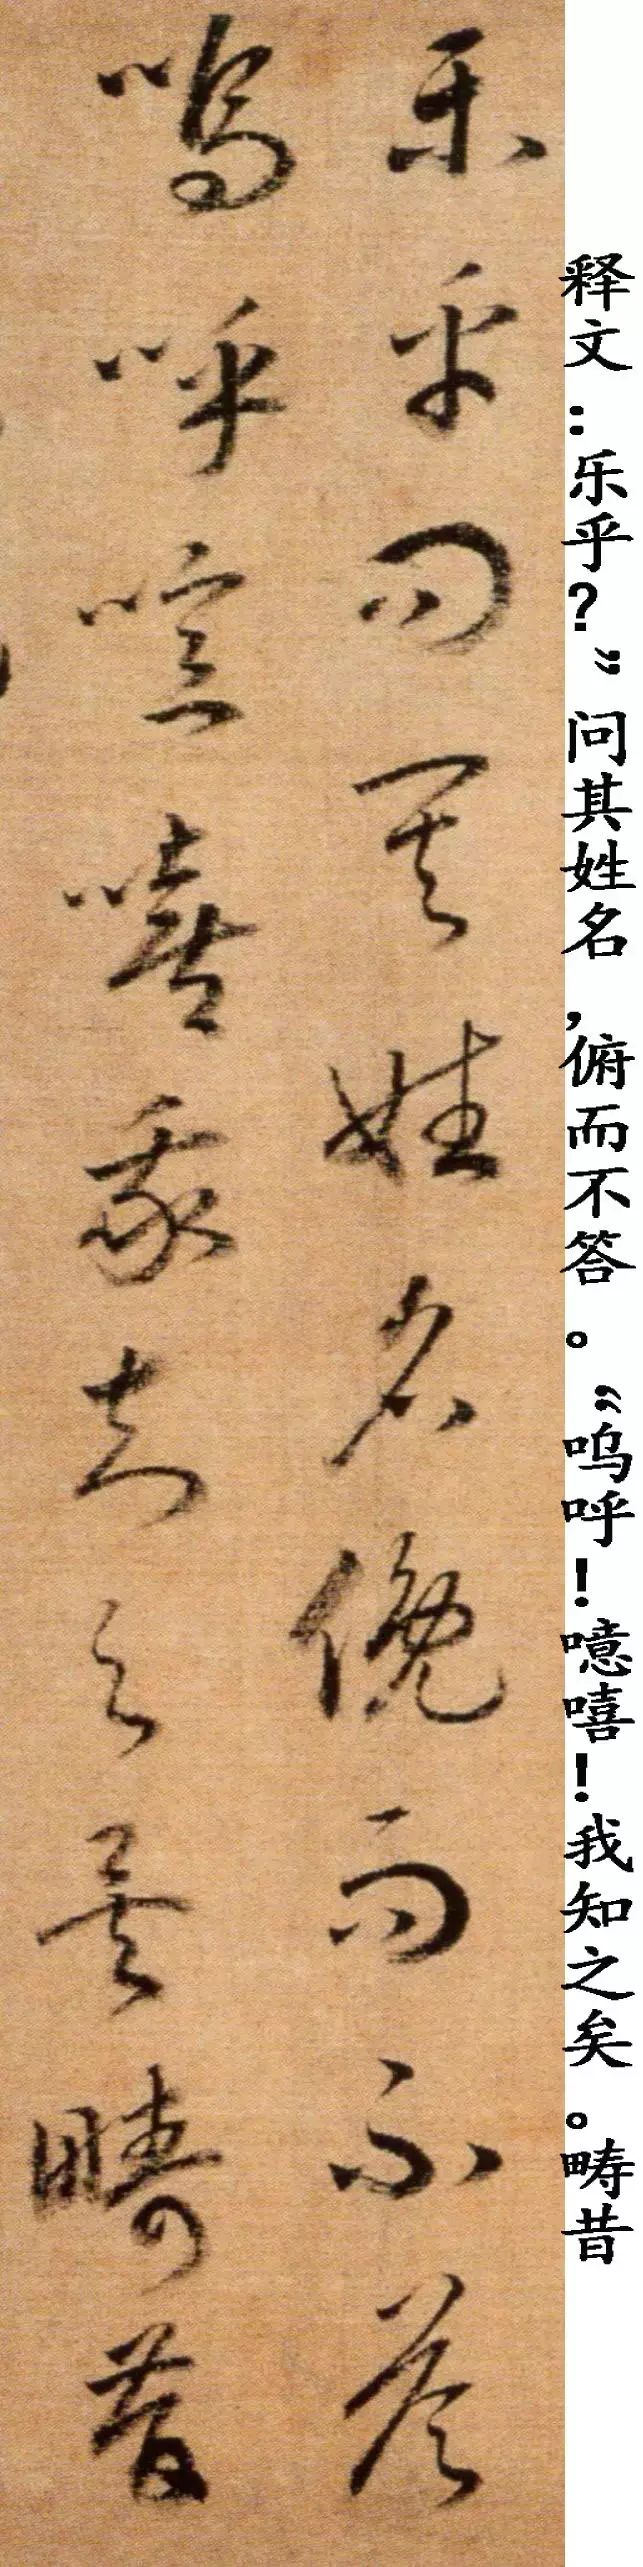 乐乎问其姓名俛而不答
呜呼噫嘻我知之矣畴昔
释文：乐乎？”问其姓名，俯而不答。“呜呼！噫嘻！我知之矣。畴昔